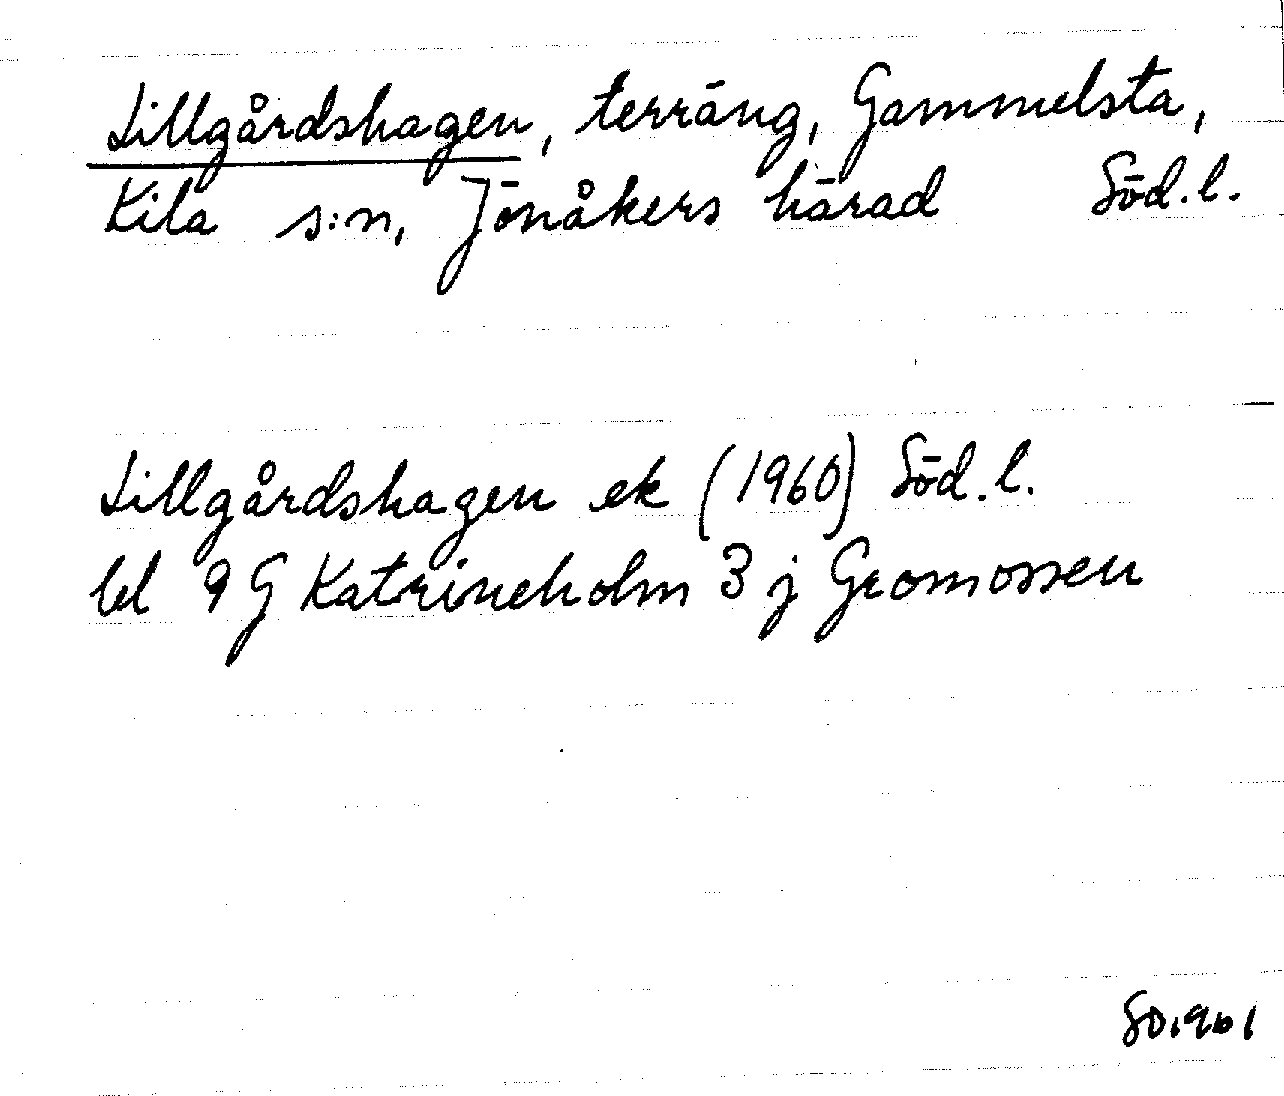 Lillgårdshagen, terräng, Gammelsta,
Kila s:n, Jönåkers härad Söd.l.
Lillgårdshagen ek (1960) Söd.l.
bl 9 G Katrineholm 3 j Gromossen